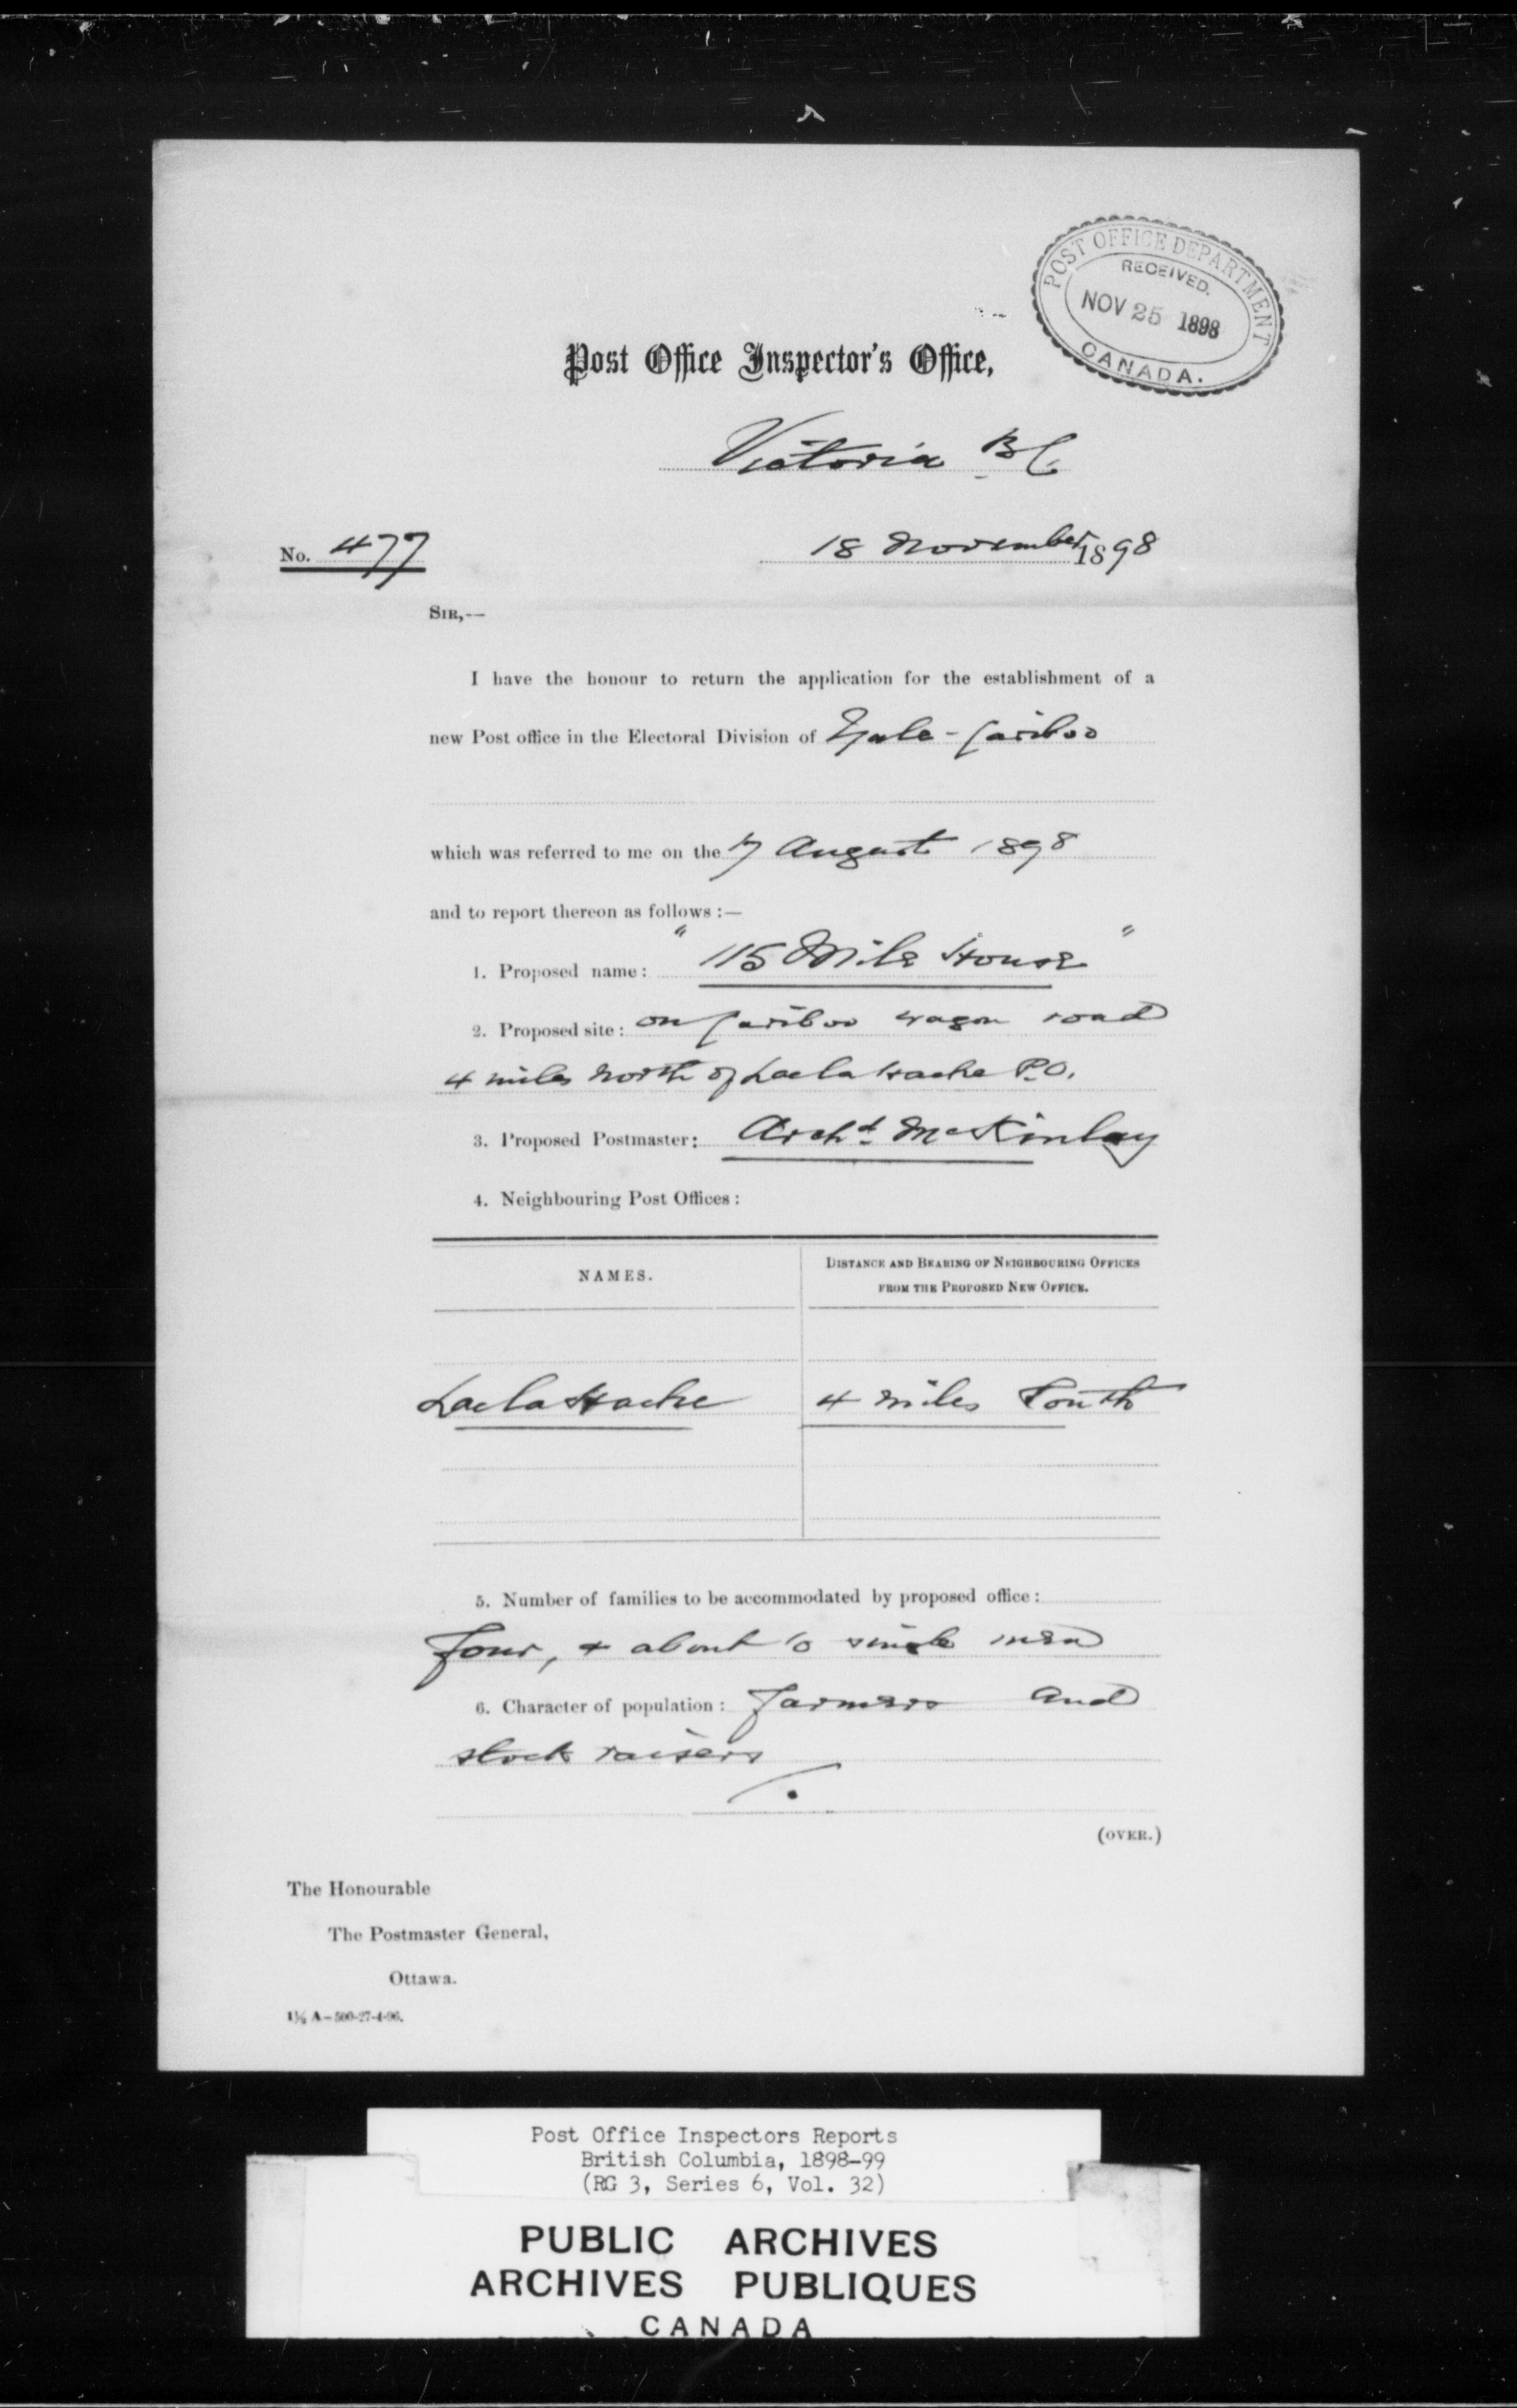 POST OFFICE DEPARTMENT
RECEIVED.
NOV 25 1898
CANADA.
Post Office Inspector's Office,
Victoria B.C.
No. 477
18 November 1898
SIR,—
I have the honour to return the application for the establishment of a
new Post office in the Electoral Division of Yale-Cariboo
which was referred to me on the 17 August 1898
and to report thereon as follows :—
1. Proposed name: "115 Mile House"
2. Proposed site: on Cariboo wagon road
4 miles north of Lac la Hache P.O.
3. Proposed Postmaster: Archd McKinlay
4. Neighbouring Post Offices :
NAMES.
DISTANCE AND BEARING OF NEIGHBOURING OFFICES
FROM THE PROPOSED NEW OFFICE.
Lac la Hache 4 miles South
5. Number of families to be accommodated by proposed office :
four, & about 10 single men
6. Character of population : farmers and
stock raisers
(OVER.)
The Honourable
The Postmaster General,
Ottawa.
1½ A–500-27-4-96.
Post Office Inspectors Reports
British Columbia, 1898-99
(RG 3, Series 6, Vol. 32)
PUBLIC ARCHIVES
ARCHIVES PUBLIQUES
CANADA